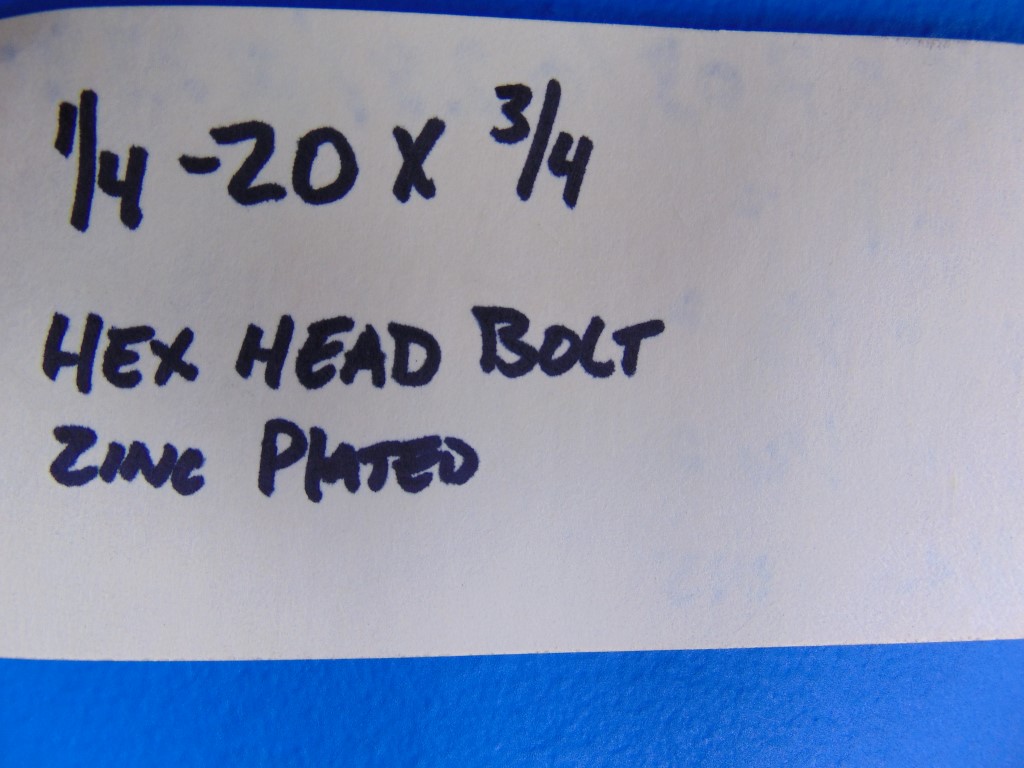 1/4 -20 X 3/4
HEX HEAD BOLT
ZINC PLATED